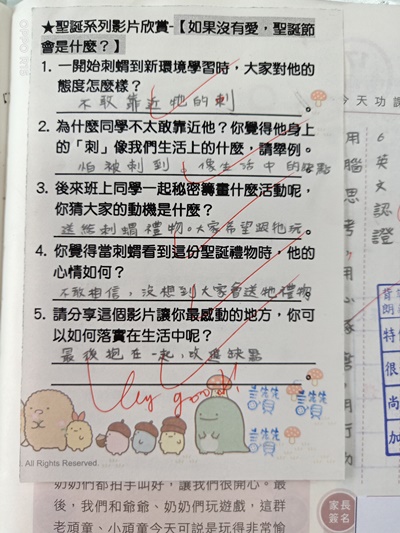 ★聖誕系列影片欣賞-【如果沒有愛，聖誕節
會是什麼？】
1. 一開始刺蝟到新環境學習時，大家對他的
態度怎麼樣？
不敢靠近牠的刺。
2. 為什麼同學不太敢靠近他？你覺得他身上
的「刺」像我們生活上的什麼，請舉例。
怕被刺到，像生活中的缺點
3. 後來班上同學一起秘密籌畫什麼活動呢，
你猜大家的動機是什麼？
送給刺蝟禮物。大家希望跟牠玩。
4. 你覺得當刺蝟看到這份聖誕禮物時，他的
心情如何？
不敢相信，沒想到大家會送牠禮物。
5. 請分享這個影片讓你最感動的地方，你可
以如何落實在生活中呢？
最後抱在一起，改進缺點
。
Very good!
All Rights Reserved.
奶奶們都拍手叫好，讓我們很開心。最
後，我們和爺爺、奶奶們玩遊戲，這群
老頑童、小頑童今天可說是玩得非常愉
家長
簽名
今天功課
6 英文認證
用腦思考
特
很
尚
加